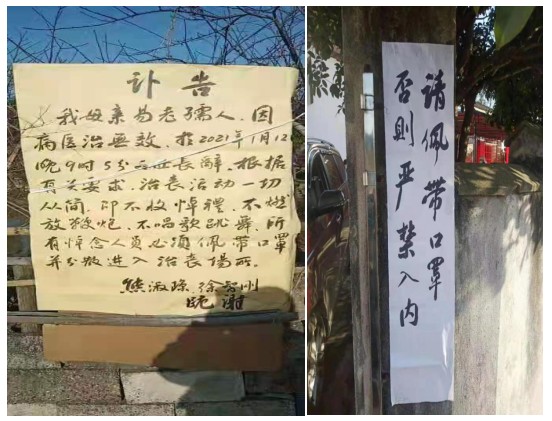 讣告
我母亲易老孺人,因
病医治無效,於2021年1月12
晚9时5分与世長辭。根据
有关要求,治丧活动一切
从简,即不收悼禮,不燃
放鞭炮,不唱歌跳舞,所
有悼念人员必須佩带口罩
并分散进入治丧場所。
熊淑琼 徐刚
跪謝
请佩带口罩
否則严禁入内